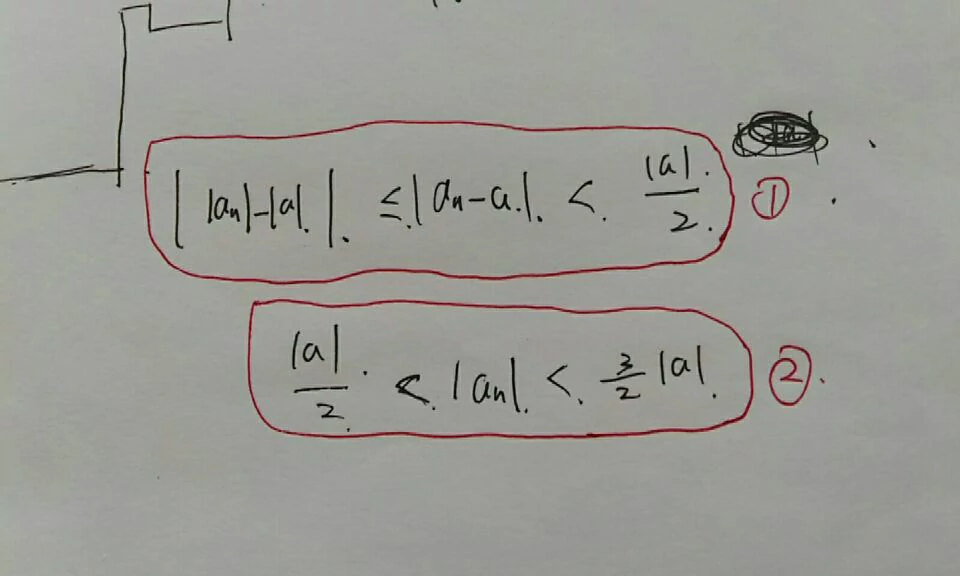 | |aₙ|-|a| | ≤ |aₙ-a| < |a|/2 ①
|a|/2 < |aₙ| < 3/2 |a| ②